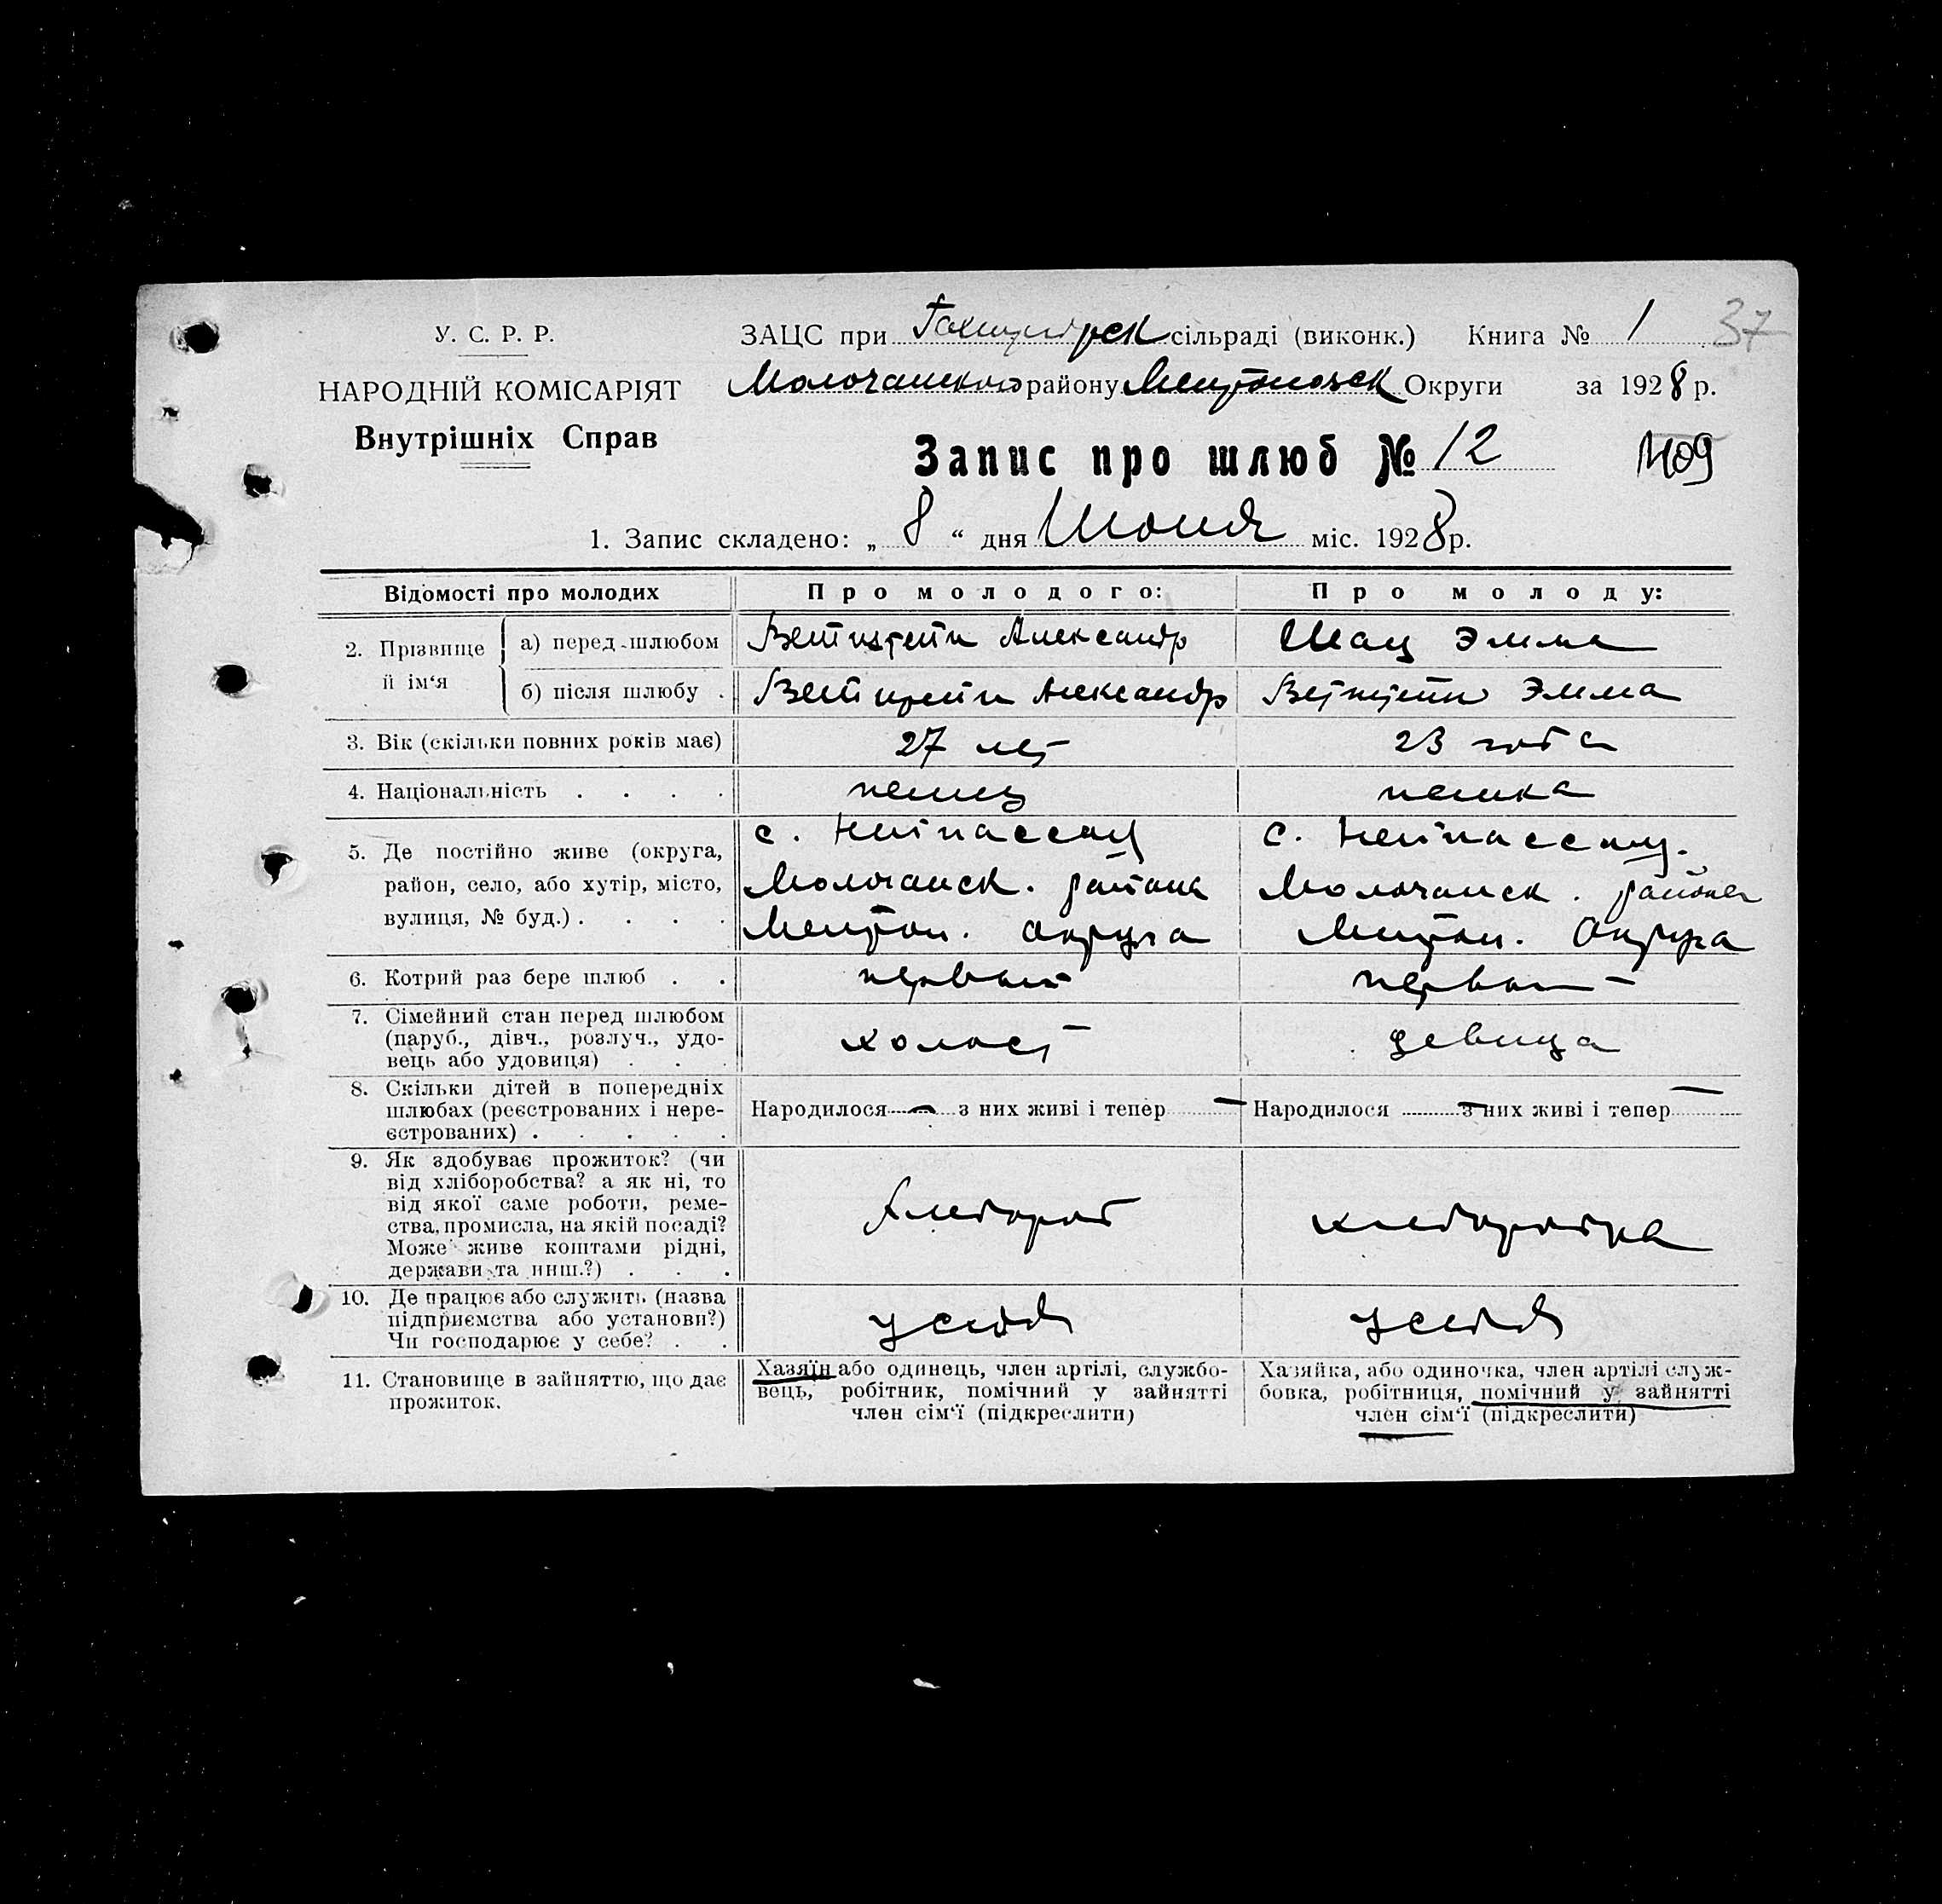 У. С. Р. Р.
НАРОДНІЙ КОМІСАРІЯТ
Внутрішніх Справ
ЗАЦС при сільраді (виконк.) Книга № 1 37
Молочанского району Мелитопольск Округи за 1928 р.
Запис про шлюб № 12
1409
1. Запис складено: „ 8 “ дня Июня міс. 1928 р.
Відомості про молодих Про молодого: Про молоду:
2. Прізвище й ім‘я
а) перед шлюбом Вейнштейн Александр Шац Эмма
б) після шлюбу . Вейнштейн Александр Вейнштейн Эмма
3. Вік (скільки повних років має) 27 лет 23 года
4. Національність . . . . немец немка
5. Де постійно живе (округа,
район, село, або хутір, місто,
вулиця, № буд.) . . . .
с. Нейнассау
Молочанск. района
Мелитоп. Округа
с. Нейнассау.
Молочанск. района
Мелитоп. Округа
6. Котрий раз бере шлюб . . первый первый
7. Сімейний стан перед шлюбом
(паруб., дівч., розлуч., удо-
вець або удовиця) . . .
холост девица
8. Скільки дітей в попередніх
шлюбах (реєстрованих і нере-
єстрованих) . . . . .
Народилося — з них живі і тепер — Народилося — з них живі і тепер —
9. Як здобуває прожиток? (чи
від хліборобства? а як ні, то
від якої саме роботи, реме-
ства, промисла, на якій посаді?
Може живе коштами рідні,
держави та инш.?) . . .
хлебороб хлеборобка
10. Де працює або служить (назва
підприємства або установи?)
Чи господарює у себе? . .
у себя у себя
11. Становище в зайняттю, що дає
прожиток.
Хазяїн або одинець, член артілі, службо-
вець, робітник, помічний у зайнятті
член сім‘ї (підкреслити)
Хазяйка, або одиночка, член артілі служ-
бовка, робітниця, помічний у зайнятті
член сім‘ї (підкреслити)